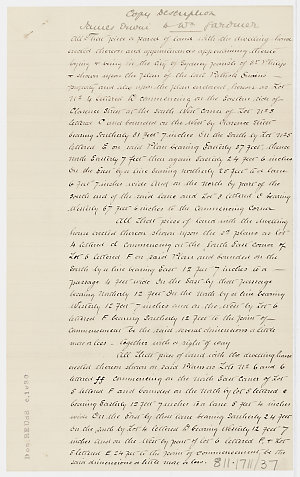 Copy Description
James Devine to Wm Gardiner
All that piece or parcel of land with the dwelling house
erected thereon and appurtenances appertaining thereto
lying & being in the City of Sydney parish of St Philips
& shewn upon the plan of the late
property and also upon the plan endorsed hereon as Lot
No 4 lettered D commencing on the Eastern side of
Clarence Street at the North West corner of Lot No 5
lettered C and bounded on the West by Clarence Street
bearing Southerly 31 feet 7 inches On the South by Lot No 5
lettered E on said Plan bearing Easterly 37 feet thence
North Easterly 7 feet then again Easterly 24 feet 6 inches
On the East by a line bearing Northerly 25 feet to a lane
6 feet 7 inches wide And on the North by part of the
south end of the said lane and Lot 3 lettered C bearing
Westerly 67 feet 6 inches to the Commencing Corner
All that piece of land with the dwelling
house erected thereon shewn upon the sd plans as Lot
4 lettered commencing at the South East corner of
Lot 5 lettered F on said Plan and bounded on the
South by a line bearing East 12 feet 7 inches to a
passage 4 feet wide On the East by that passage
bearing Northerly 12 feet On the North by a line bearing
Westerly 12 feet 7 inches and on the West by Lot 6
lettered F bearing Southerly 12 feet to the point of
Commencement be the said several dimensions a little
more or less - together with a right of way
All that piece of land with the dwelling house
erected thereon shewn on said Plan as Lots No 2 and 6
lettered commencing at the North East Corner of Lot
5 lettered F and bounded on the North by Lot 5 lettered
bearing Easterly 12 feet 7 inches to a lane 5 feet 4 inches
wide On the East by that lane bearing Southerly 24 feet
on the South by Lot 4 lettered bearing Westerly 12 feet 7
inches and on the West by part of Lot 6 lettered F & Lot
5 lettered E 24 feet to the point of commencement, be the
said dimensions a little more or less.
811.1711/37